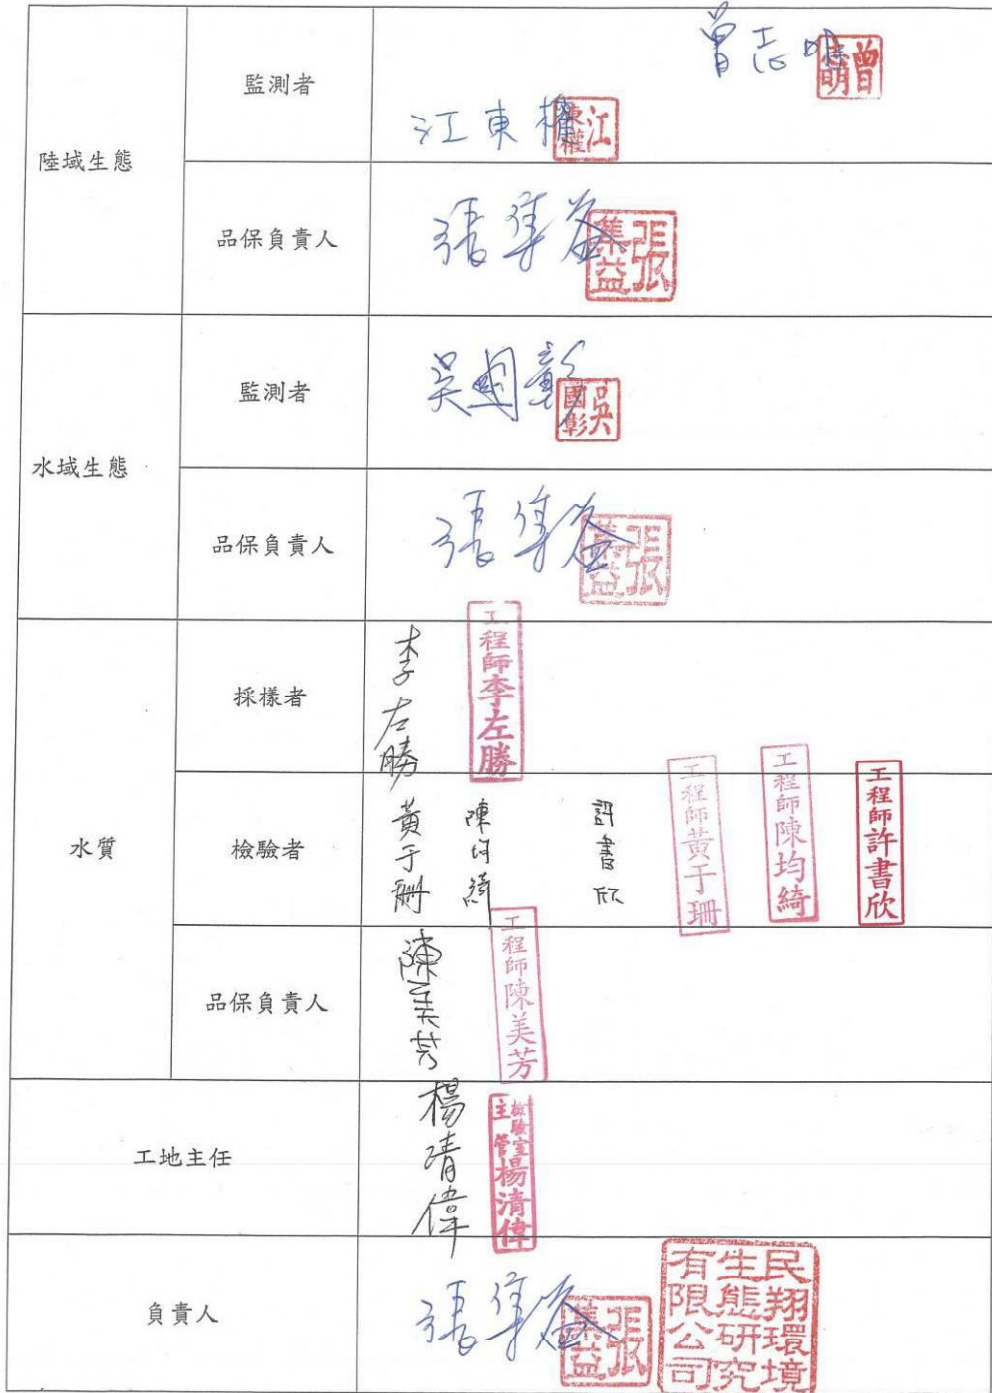 陸域生態
監測者
江東權
江東權
曾志明
曾志明
品保負責人
張集益
張集益
水域生態
監測者
吳國彰
吳國彰
品保負責人
張集益
張集益
水質
採樣者
李左勝
工程師李左勝
檢驗者
黃于珊
陳均綺
許書欣
工程師黃于珊
工程師陳均綺
工程師許書欣
品保負責人
陳美芳
工程師陳美芳
工地主任
楊清偉
檢驗室主管楊清偉
負責人
張集益
張集益
民翔環境生態研究有限公司